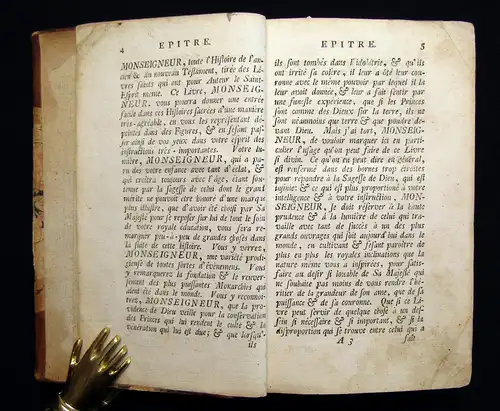 4 EPITRE.
MONSEIGNEUR, toute l'Histoire de l'an-
cien & du nouveau Testament, tirée des Li-
vres saints qui ont pour Auteur le Saint-
Esprit meme. Ce Livre, MONSEIG-
NEUR, vous pourra donner une entrée
facile dans ces Histoires sacrées d'une maniere
très-agréable, en vous les représentant dé-
peintes dans des Figures, & en fesant pas-
ser ainsi de vos yeux dans votre esprit des
instructions très-importantes. Votre lu-
miére, MONSEIGNEUR, qui a pa-
ru dès votre enfance avec tant d'éclat, &
qui croitra toujours avec l'âge, étant sou-
tenue par la sagesse de celui dont le grand
mérite ne pouvoit être honoré d'une marque
plus illustre, que d'avoir été choisi par Sa
Majesté pour se reposer sur lui de tout le soin
de votre royale éducation, vous fera re-
marquer peu-à-peu de grandes choses dans
la suite de cette Histoire. Vous y verrez,
MONSEIGNEUR, une varieté prodi-
gieuse de toutes sortes d'événemens. Vous
y remarquerez la fondation & le renverse-
ment des plus puissantes Monarchies qui
aient été dans le monde. Vous y reconnoi-
trez, MONSEIGNEUR, que la pro-
vidence de Dieu veille pour la conservation
des Princes qui lui rendent le culte & la
vénération qui lui est due; & que lorsqu'-
ils
EPITRE. 5
ils sont tombés dans l'idolâtrie, & qu'ils
ont irrité sa colere, il leur a ôté leur cou-
ronne avec le même pouvoir par lequel il la
leur avoit donnée, & leur a fait sentir par
une funeste expérience, que si les Princes
sont comme des Dieux sur la terre, ils ne
sont néanmoins que terre & que poudre de-
vant Dieu. Mais j'ai tort, MONSEIG-
NEUR, de vouloir marquer ici en parti-
culier l'usage qu'on peut faire de ce Livre
si divin. Ce qu'on en peut dire en général,
est renfermé dans des bornes trop étroites
pour répondre à la Sagesse de Dieu, qui est
infinie: & ce qui est plus proportionné à votre
intelligence & à votre instruction, MON-
SEIGNEUR, je doit réserver à la haute
prudence & à la lumière de celui qui tra-
vaille avec tant de succès à un des plus
grands ouvrages qui soit aujourd'hui dans le
monde, en cultivant & fesant paroître de
plus en plus les royales inclinations que la
nature même vous a inspirées, pour satis-
faire au desir si louable de Sa Majesté qui
ne souhaite pas moins de vous rendre l'hé-
ritier de la grandeur de son ame, que de sa
puissance & de sa couronne. Que si ce Li-
vre peut servir de quelque chose à un des-
sein si nécessaire & si important, & si la
disproportion qui se trouve entre celui qui a
A 3 fait